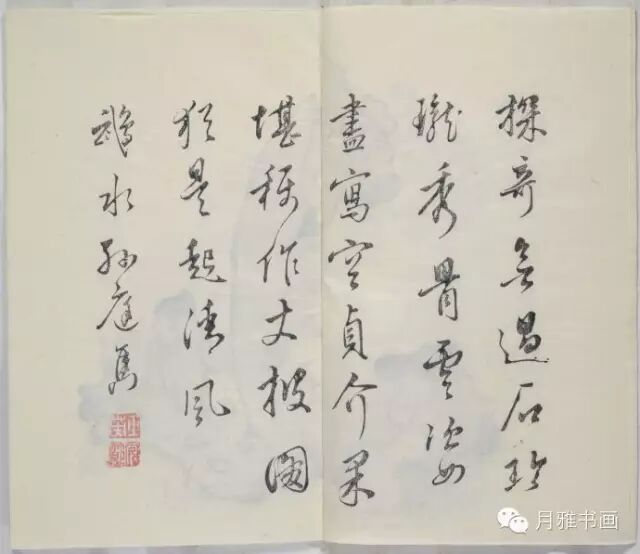 探奇無過石玲
瓏秀骨雲姿
盡寫空貞介果
堪稱作丈披圖
猶是起清風
鵡水孫庭雋
月雅书画